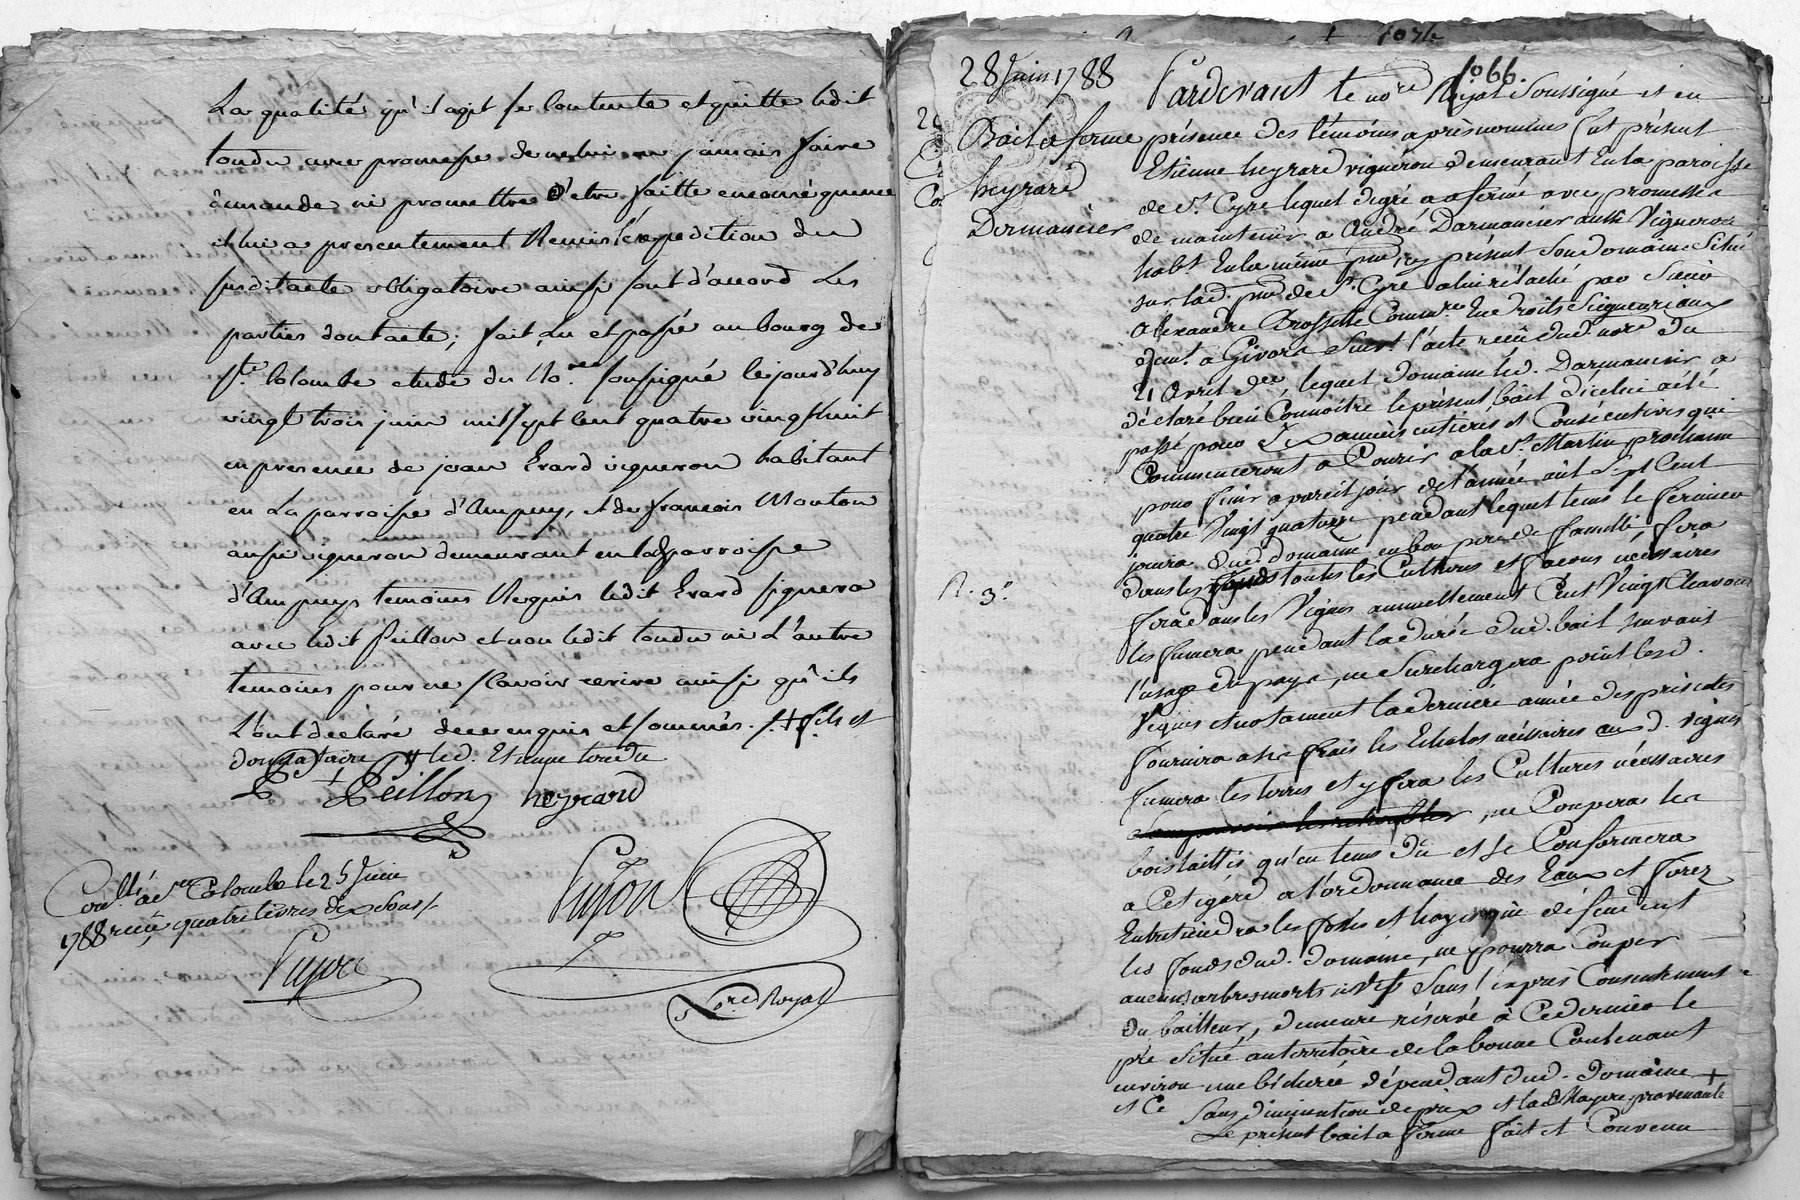 La qualité qu'il agit se contente et quitte ledit
tondu avec promesse de ne lui en jamais faire
demande ni promettre d'etre faitte en conséquence
il lui a presentement Remis l'expedition du
susdit acte obligatoire ainsi sont d'accord Les
parties dont acte; fait, Lu et passé au bourg de
Ste Colombe etude du No.re soussigné le jourd'huy
vingt trois juin mil sept cent quatre vingt huit
en presence de jean Erard vigneron habitant
en La parroisse d'Ampuy, et de francois Mouton
aussi vigneron demeurant en lad parroisse
d'Ampuys temoins Requis ledit Erard signera
avec ledit Peillon et non ledit tondu ni L'autre
temoins pour ne scavoir ecrire ainsi qu'ils
L'ont declaré de ce enquis et sommés. /. + fils et
donataire # led. Etienne tondu
Peillon heyrard
Pujon
N.re Royal
Con.llé à Ste Colombe le 25 Juin
1788 reçu quatre livres dix sous /.
Pujon
1074
f° 66.
28 Juin 1788
Bail a ferme
heyrard
Darmancier
R. 3.#
Pardevant le no.re Royal Soussigné et en
présence des témoins après nommés fut présent
Etienne heyrard vigneron demeurant En la paroisse
de St. Cyre lequel degré a afermé avec promesse
de maintenir a André Darmancier aussi Vigneron
habt. En la même p.sse, icy présent Son domaine Situé
sur lad. p.sse de St. Cyre a lui rélaché par Sieur
Alexandre Brossette Comm.re En droits Seigneuriaux
dem.t a Givors Suiv.t l'acte reçu dud. no.re du
21 Avril d.er, lequel domaine led. Darmancier a
déclaré bien Connoitre le présent bail d'icelui a été
passé pour Six années entières et Consécutives qui
Commenceront a Courir a la St. Martin prochaine
pour finir a pareil jour de l'année mil Sept Cent
quatre Vingt quatorze pendant lequel tems le fermier
jouira dud. domaine en bon pere de famille, fera
dans les fonds toutes les Cultures et façons nécéssaires
fera dans les Vignes annuellement Cent Vingt Chavons
les fumera pendant la durée dud. bail Suivant
l'usage du pays, ne Surchargera point lesd.
Vignes et notament la derniere année des présentes
fournira a ses frais les Echalas nécéssaires aux d. vignes
fumera les terres et y fera les Cultures nécéssaires
, ne Coupera les
bois taillis qu'en tems dû et se Conformera
a Cet égard a l'ordonnance des Eaux et forez
Entretiendra les fossés et hayes qui défendent
les fonds dud. domaine, ne pourra Couper
aucuns arbres morts ni vifs Sans l'exprès Consentement
du bailleur, demeure réservé à Ce dernier le
pré Situé au territoire de la bonne Contenant
environ une bicherée dépendant dud. domaine +
et Ce Sans diminution de prix et la d. Rayere provenante
Le présent bail a ferme fait et Convenu